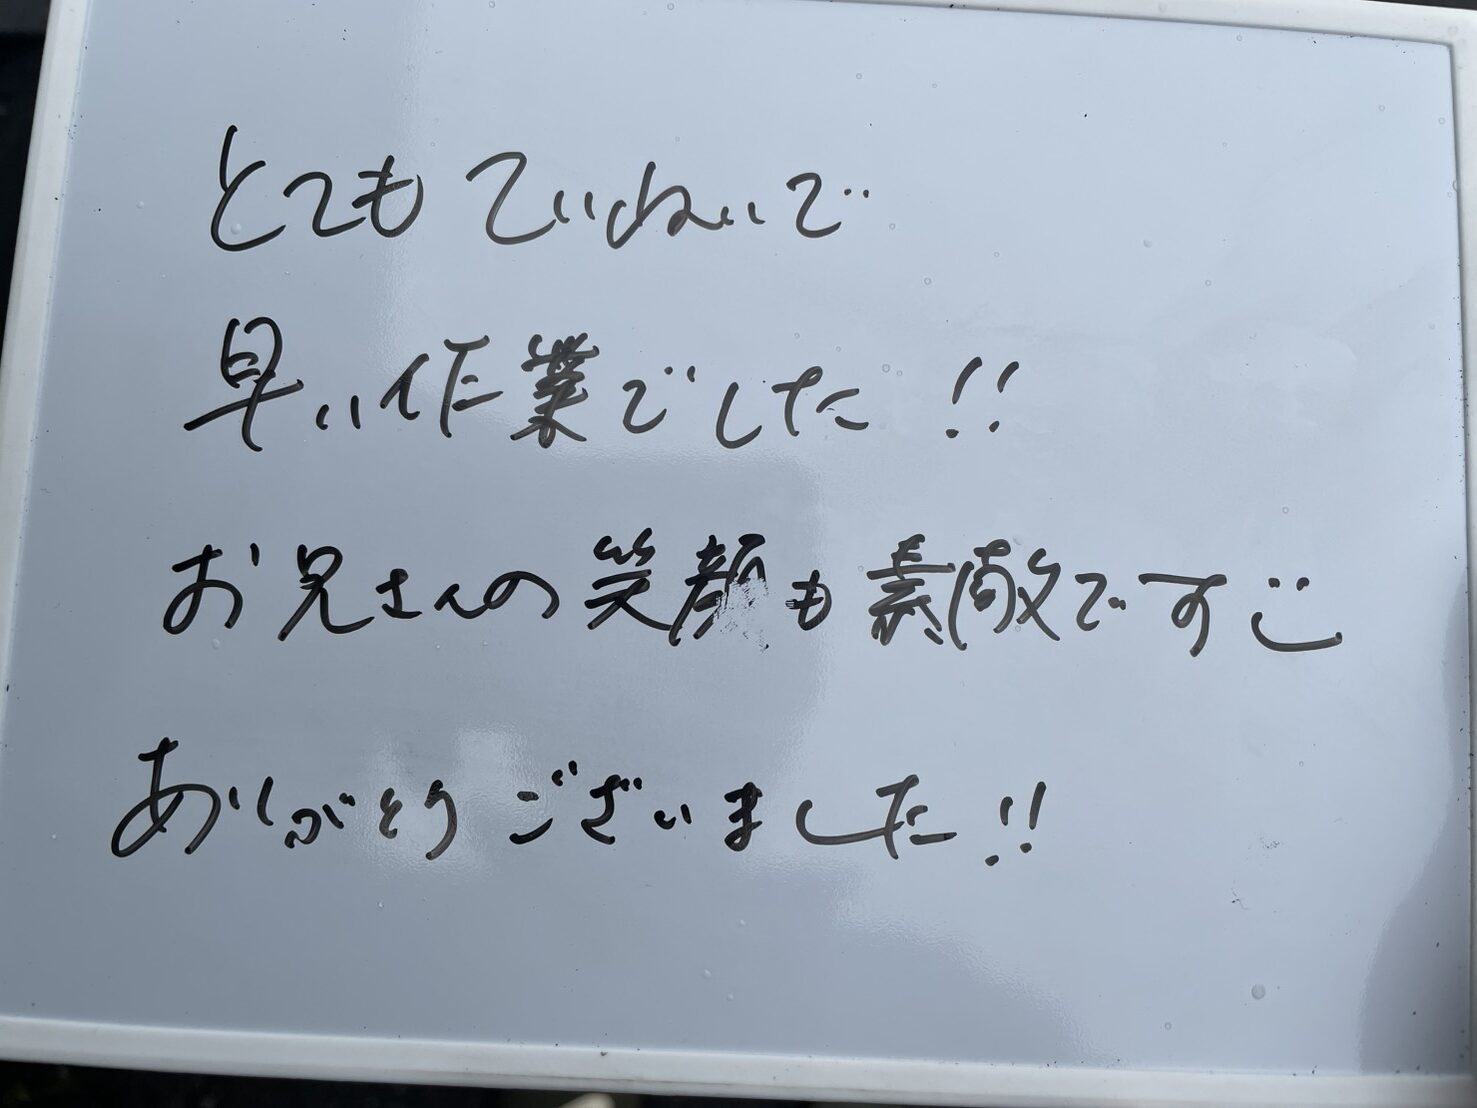 とてもていねいで
早い作業でした!!
お兄さんの笑顔も素敵です
ありがとうございました!!